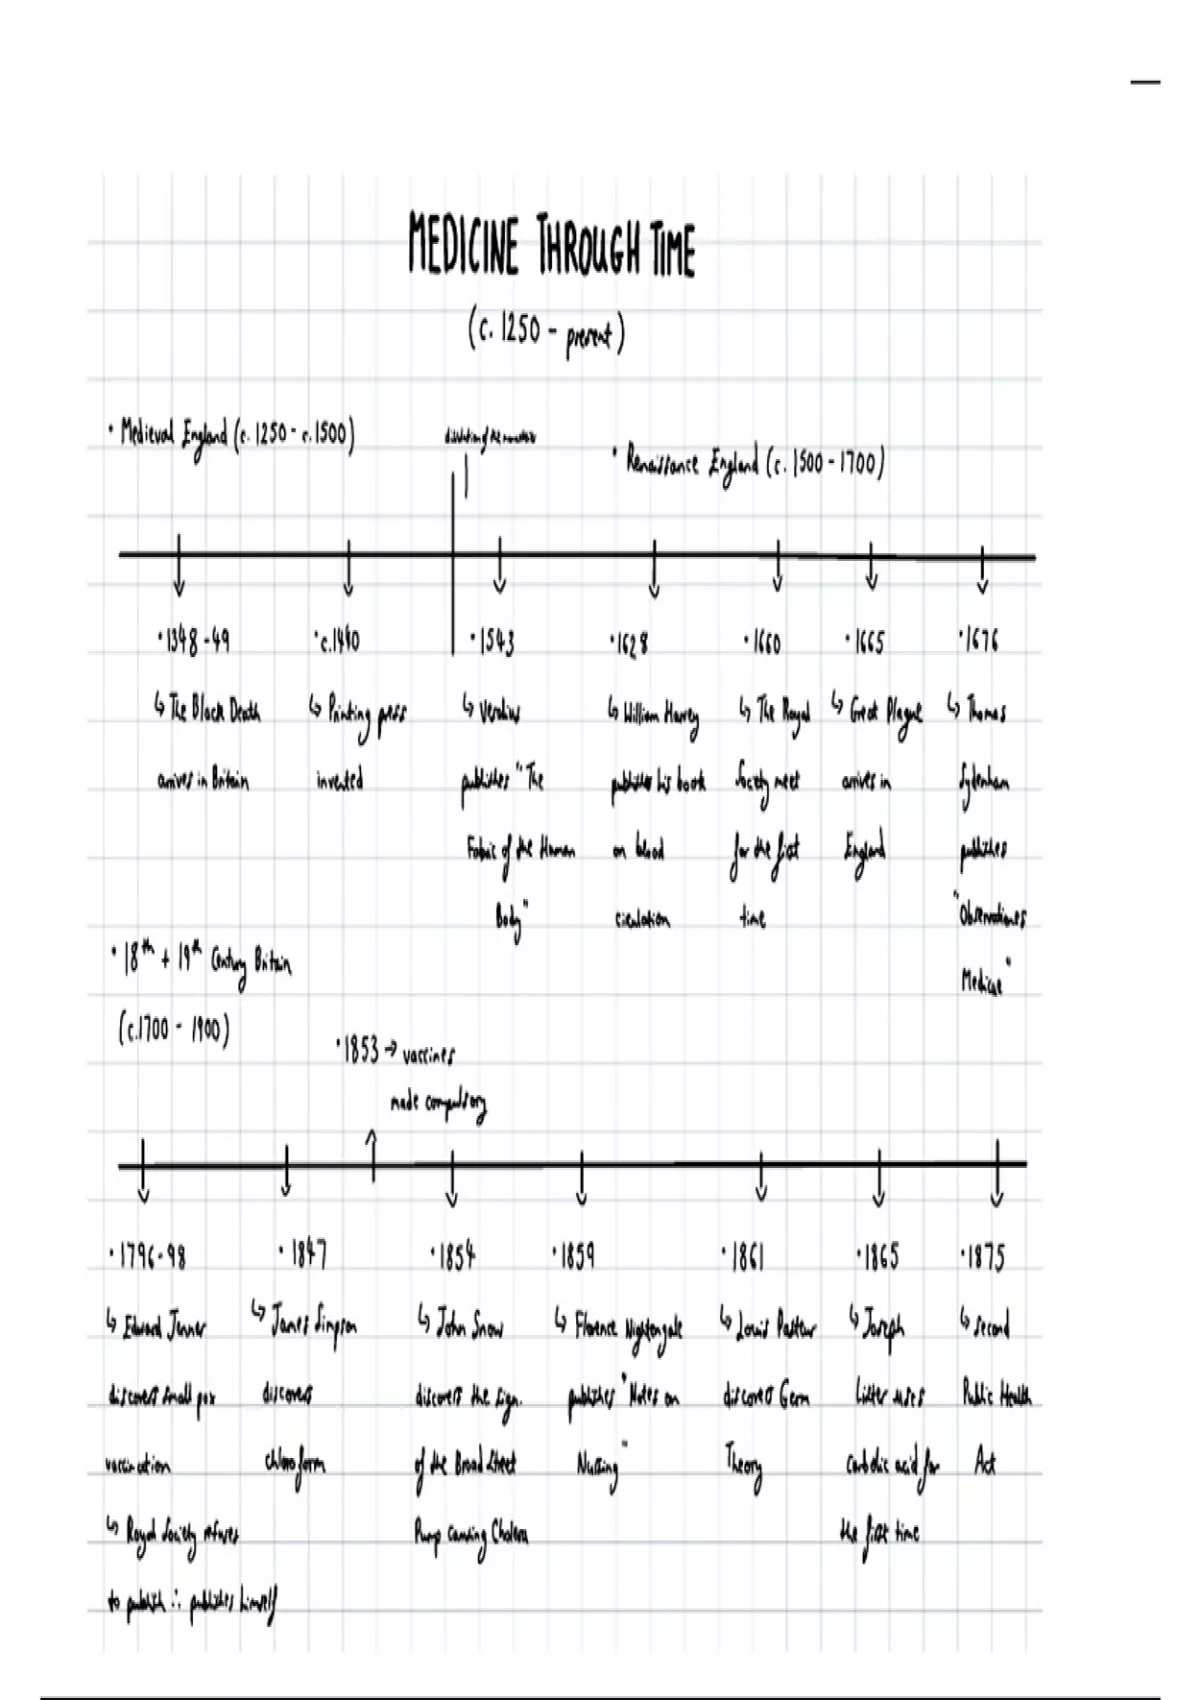 MEDICINE THROUGH TIME
(c. 1250 - present)
• Medieval England (c. 1250 - c. 1500)
dissolution of the monasteries
• Renaissance England (c. 1500 - 1700)
• 1348-49
↳ The Black Death
arrives in Britain
• c.1440
↳ Printing press
invented
• 1543
↳ Vesalius
publishes "The
Fabric of the Human
Body"
• 1628
↳ William Harvey
publishes his book
on blood
circulation
• 1660
↳ The Royal
Society meet
for the first
time
• 1665
↳ Great Plague
arrives in
England
• 1676
↳ Thomas
Sydenham
publishes
"Observationes
Medicae"
• 18th + 19th Century Britain
(c.1700 - 1900)
• 1853 → vaccines
made compulsory
• 1796-98
↳ Edward Jenner
discovers small pox
vaccination
↳ Royal Society refuses
to publish ∴ publishes himself
• 1847
↳ James Simpson
discovers
chloroform
• 1854
↳ John Snow
discovers the sign.
of the Broad Street
Pump causing Cholera
• 1859
↳ Florence Nightengale
publishes "Notes on
Nursing"
• 1861
↳ Louis Pasteur
discovers Germ
Theory
• 1865
↳ Joseph
Lister uses
carbolic acid for
the first time
• 1875
↳ second
Public Health
Act